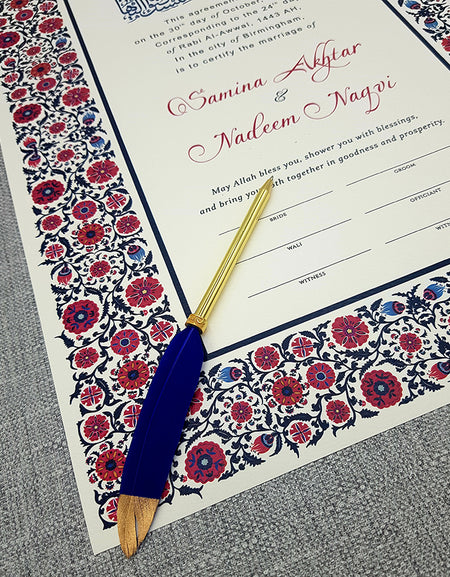 This agreement
on the 30th day of October,
Corresponding to the 24th day
of Rabi Al-Awwal, 1443 AH,
In the city of Birmingham,
is to certify the marriage of
Samina Akhtar
&
Nadeem Naqvi
May Allah bless you, shower you with blessings,
and bring you both together in goodness and prosperity.
BRIDE
GROOM
WALI
OFFICIANT
WITNESS